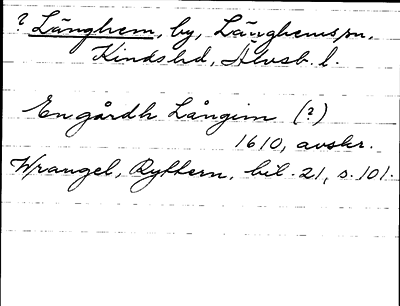 ? Länghem, by, Länghems sn,
Kinds hd, Älvsb. l.
En gårdh Långim (?)
1610, avskr.
Wrangel, Ryttern, bil. 21, s. 101.